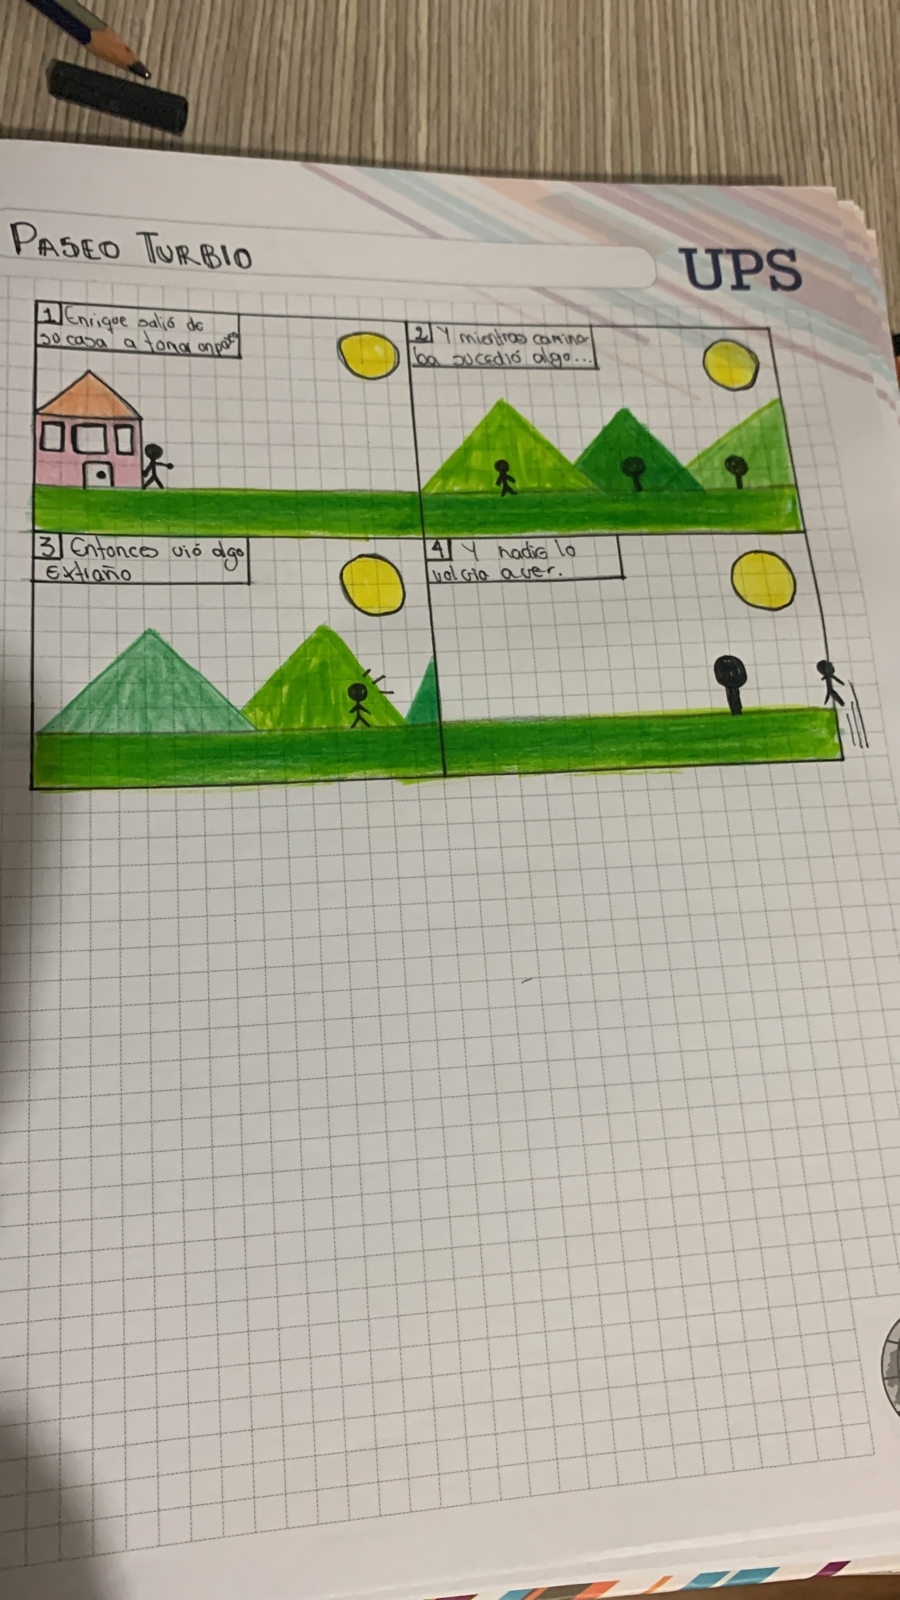 PASEO TURBIO
UPS
1 Enrique salió de
su casa a tomar
2 Y mientras camina-
ba sucedió algo...
3 Entonces vió algo
Extraño
4 Y nadie lo
volvía a ver.